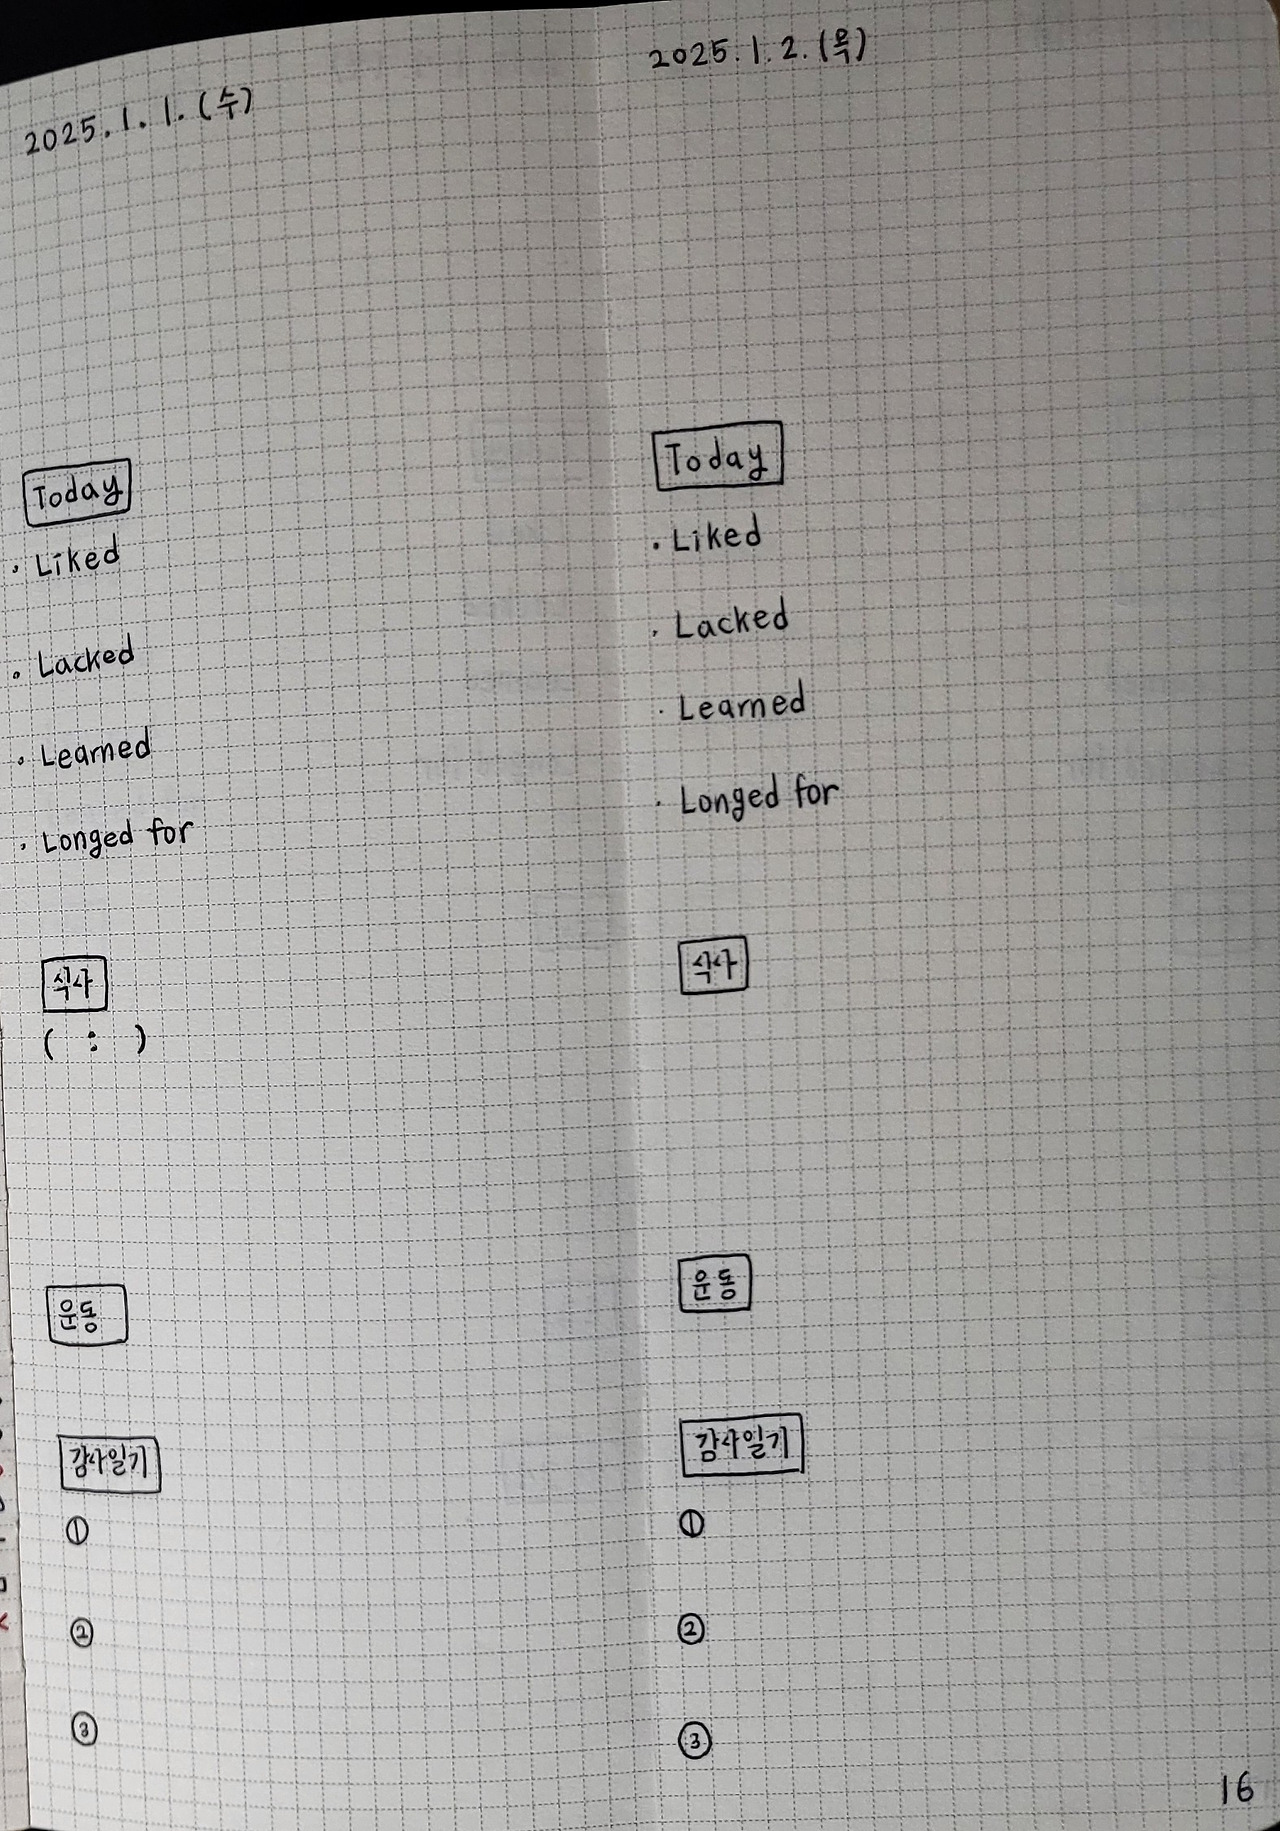 2025.1.1.(수)
Today
· Liked
· Lacked
· Learned
· Longed for
식사
( : )
운동
감사일기
①
②
③
2025.1.2.(목)
Today
· Liked
· Lacked
· Learned
· Longed for
식사
운동
감사일기
①
②
③
16